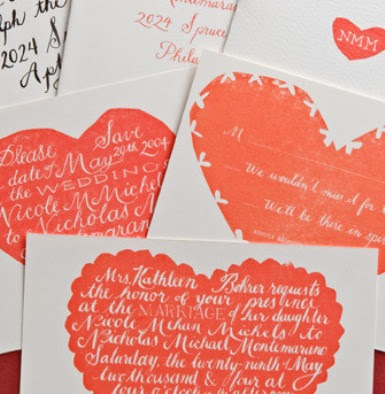 lph the
2024 S
Ap
2024 Spruce
Phila
NMM
Please Save
date May 29th 2004
the WEDDING
Nicole M Michel
to Nicholas M
M
We wouldn't miss it for
We'll be there in spi
KINDLY
Mrs. Kathleen Bohrer requests
the honor of your presence
at the MARRIAGE of her daughter
Nicole Mehan Michels to
Nicholas Michael Montemarano
Saturday, the twenty-ninth of May
two thousand & four at
four o'clock